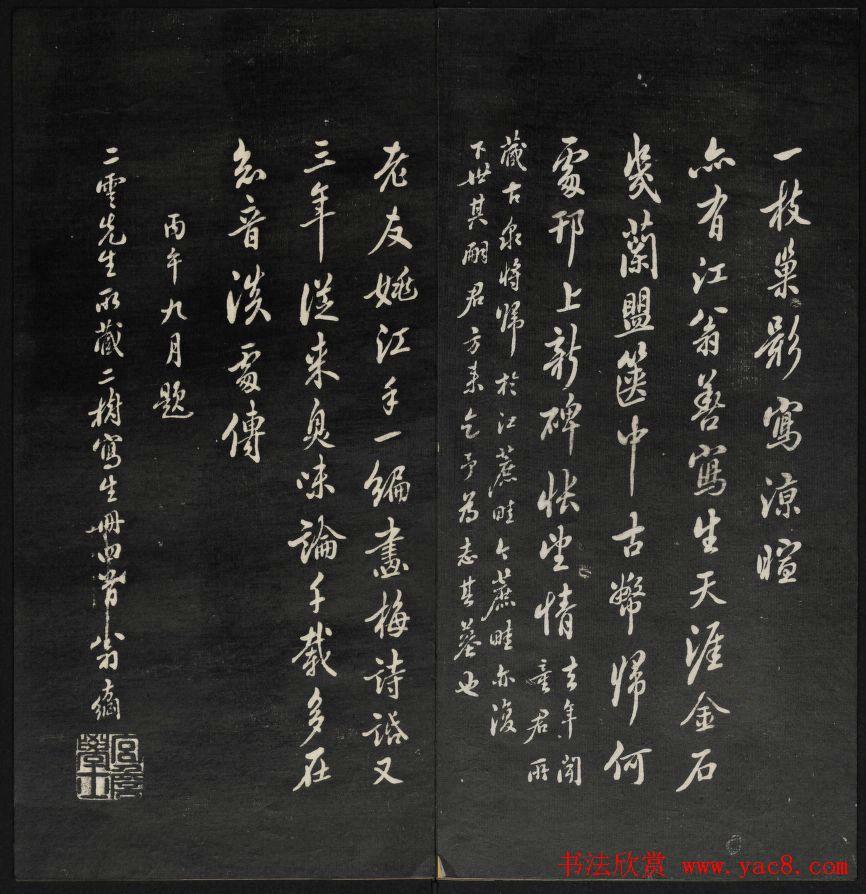 一枝巢影寫涼暄
亦有江翁善寫生天涯金石
幾蘭盟篋中古幣歸何
處邗上新碑悵望情去年聞
童君所
藏古泉將歸於江蔗畦今蔗畦亦復
下世其嗣君方来乞予為志其墓也
老友姚江手一編畫梅詩話又
三年從来臭味論千載多在
知音淡處傳
丙午九月題
二雲先生所藏二樹寫生冊四首翁方綱
宮詹學士
书法欣赏 www.yac8.com